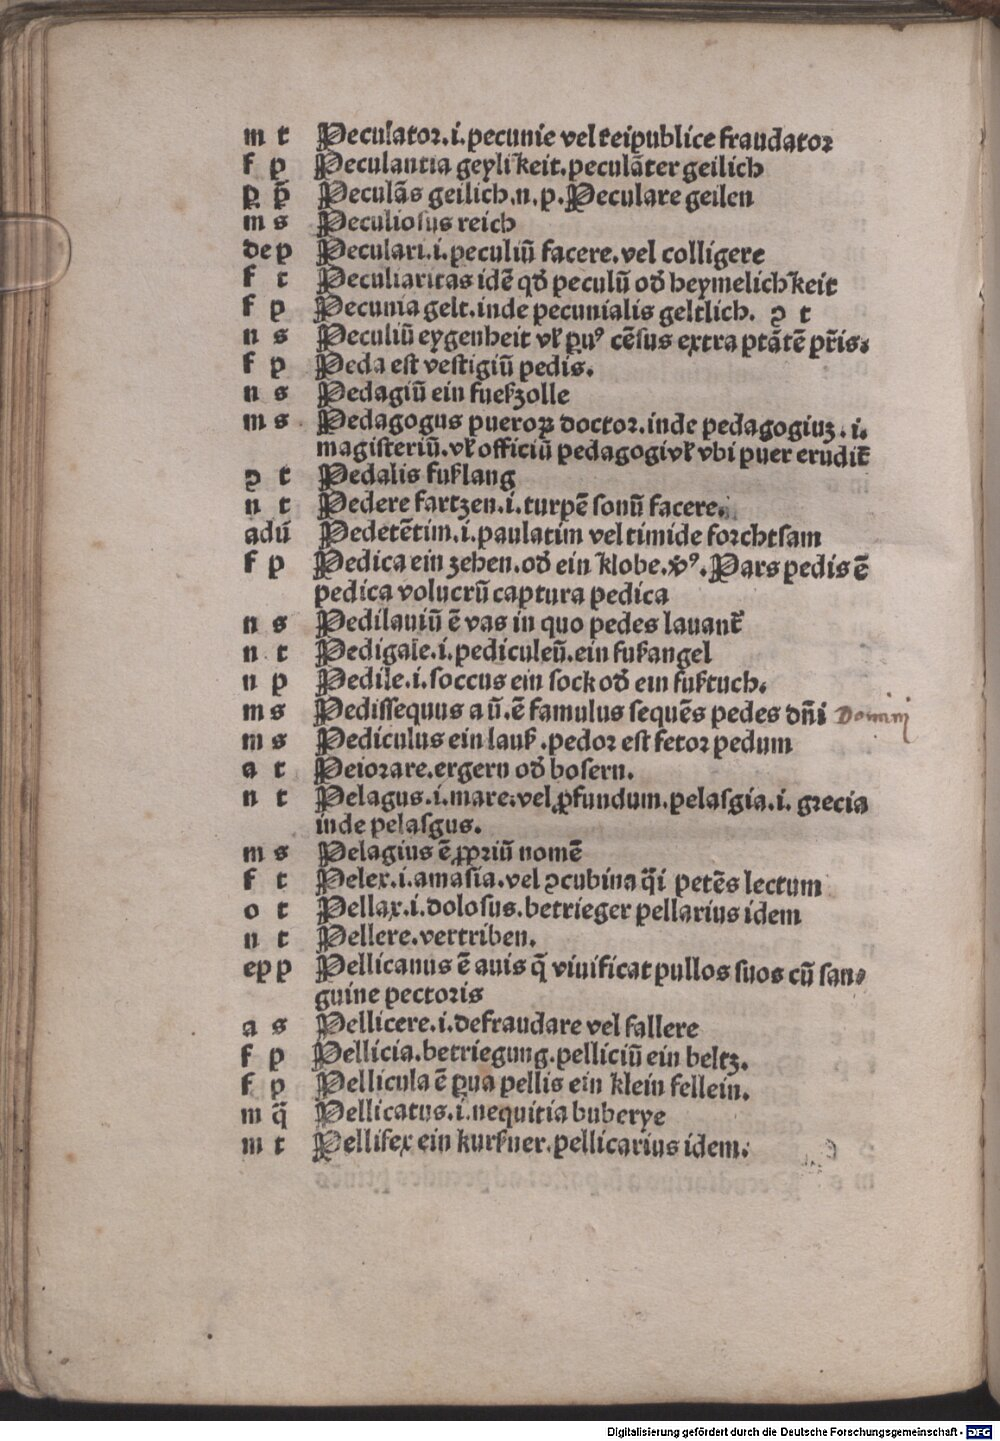 m t Peculator.i.pecunie vel reipublice fraudator
f p Peculantia geylikeit.peculāter geilich
ꝑ p̄ Peculās geilich.n.p.Peculare geilen
m s Peculiosus reich
de p Peculari.i.peculiū facere.vel colligere
f t Peculiaritas idē qđ peculū ođ heymelichkeit
f p Pecunia gelt.inde pecunialis geltlich. ꝯ t
n s Peculiū eygenheit vl̓ ꝑuꝰ cēsus extra ptātē pr̄is.
f p Peda est vestigiū pedis.
n s Pedagiū ein fueßzolle
m s Pedagogus pueroꝝ doctor.inde pedagogiuꝫ.i.
magisteriū.vl̓ officiū pedagogi vl̓ vbi puer erudit̄
ꝯ t Pedalis fußlang
n t Pedere fartzen.i.turpē sonū facere.
adū Pedetētim.i.paulatim vel timide forchtsam
f p Pedica ein zehen.ođ ein klobe.v̓ꝰ.Pars pedis ē
pedica volucrū captura pedica
n s Pedilauiū ē vas in quo pedes lauant̄
n t Pedigale.i.pediculeū.ein fußangel
n p Pedile.i.soccus ein sock ođ ein fußtuch.
m s Pedissequus a ū.ē famulus sequēs pedes dn̄i Domini
m s Pediculus ein lauß.pedor est fetor pedum
a t Peiorare.ergern ođ bosern.
n t Pelagus.i.mare.vel ꝓfundum.pelasgia.i. grecia
inde pelasgus.
m s Pelagius ē ꝓpriū nomē
f t Pelex.i.amasia.vel ꝯcubina q̄i petēs lectum
o t Pellax.i.dolosus.betrieger pellarius idem
n t Pellere.vertriben.
ep p Pellicanus ē auis q̄ viuificat pullos suos cū san⸗
guine pectoris
a s Pellicere.i.defraudare vel fallere
f p Pellicia.betriegung.pelliciū ein beltz.
f p Pellicula ē ꝑua pellis ein klein fellein.
m q̄ Pellicatus.i.nequitia buberye
m t Pellifex ein kurßner.pellicarius idem.
Digitalisierung gefördert durch die Deutsche Forschungsgemeinschaft - DFG